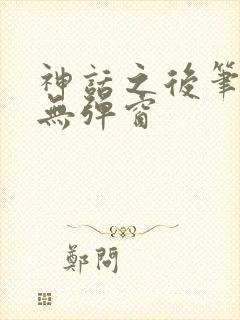 神話之後筆
無彈窗
鄭問